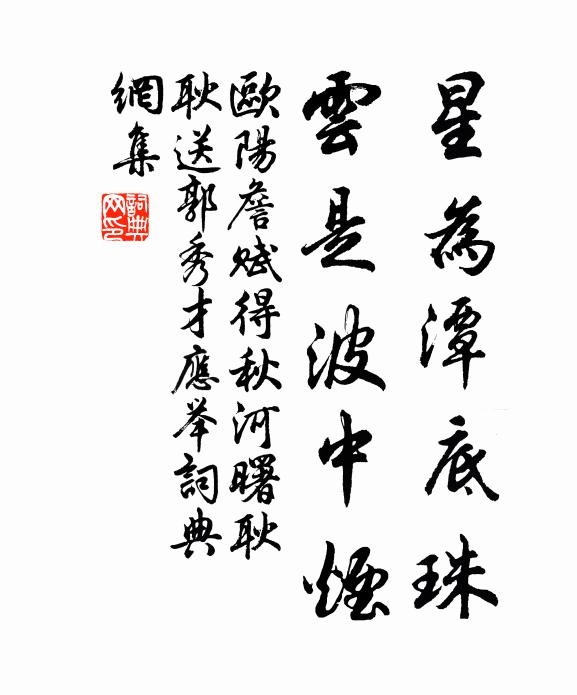 星為潭底珠
雲是波中煙
歐陽詹賦得秋河曙耿
耿送郭秀才應举詞典
網集
詞典
网印